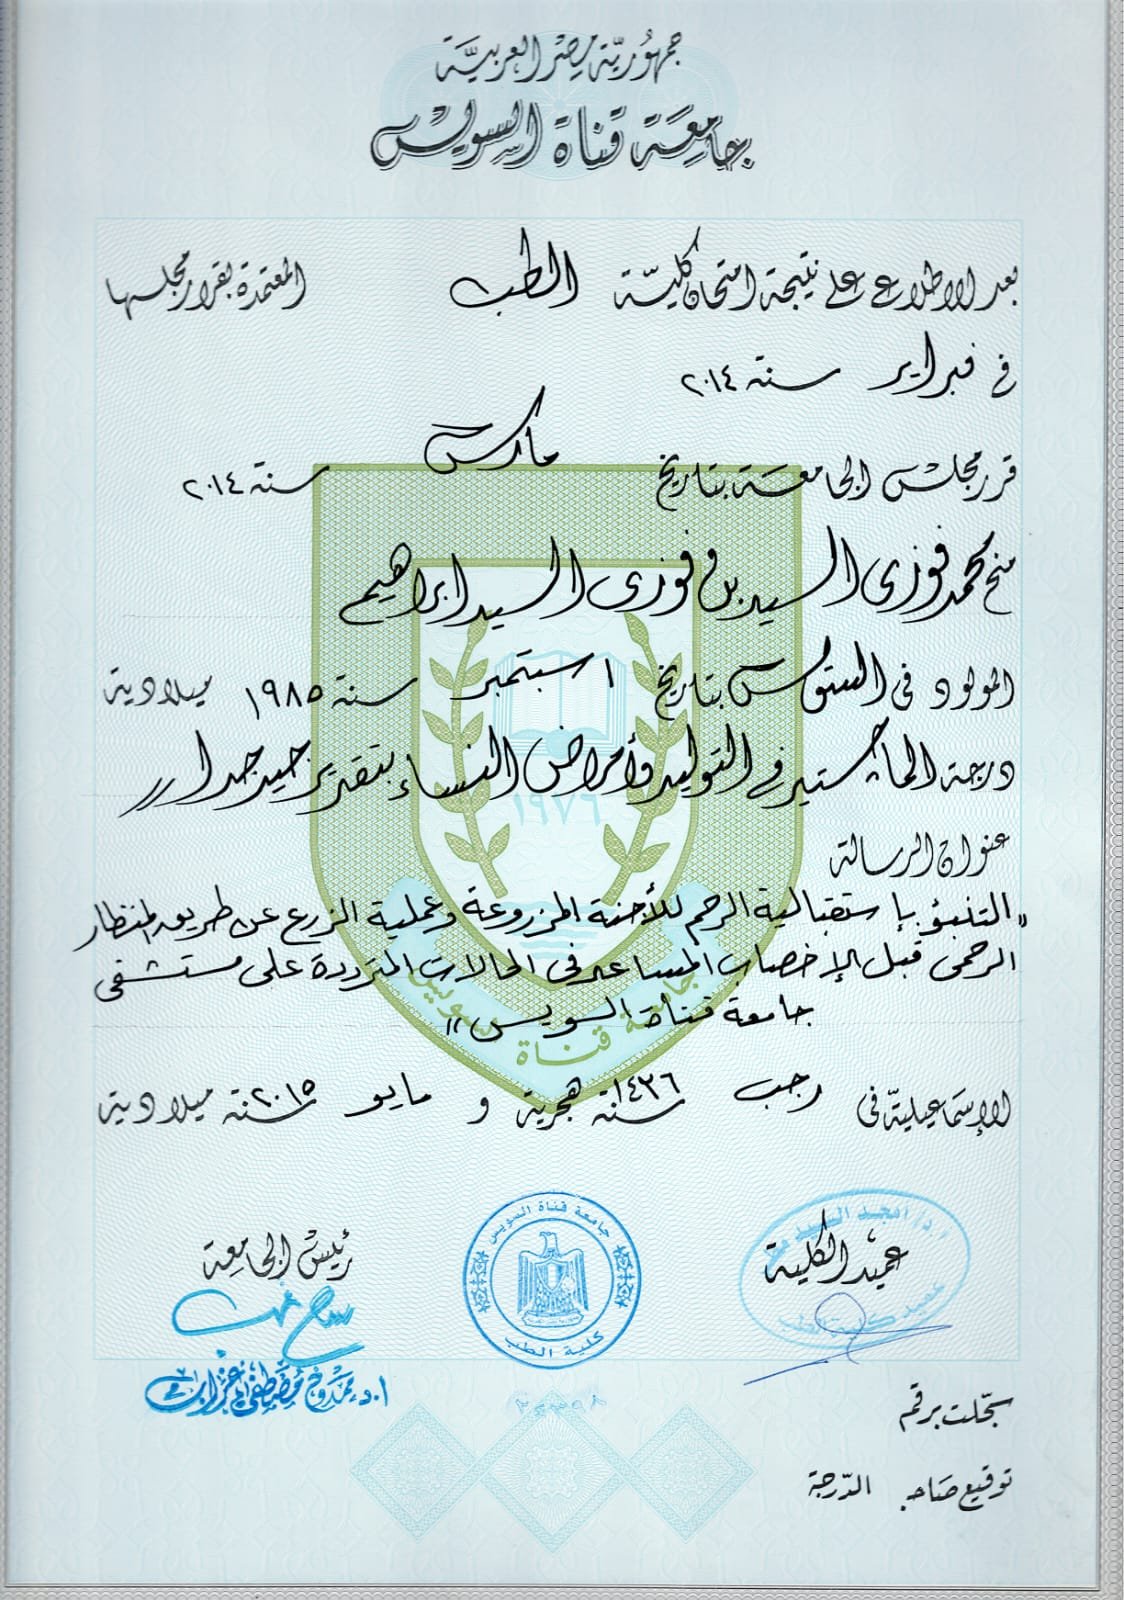 جمهوريّة مصر العربيّة
جامعة قناة السويس
بعد الاطلاع على نتيجة امتحان كليّة الطب المعتمدة بقرار مجلسها
في فبراير سنة ٢٠١٤
قرر مجلس الجامعة بتاريخ مارس سنة ٢٠١٤
منح محمد فوزى السيد بن فوزى السيد ابراهيم
المولود فى بتاريخ ١ سبتمبر سنة ١٩٨٥ ميلادية
درجة الماجستير فى التوليد وأمراض النساء بتقدير جيد جدا
عنوان الرسالة
"التنبؤ بإستقبالية الرحم للأجنة المزروعة وعملية الزرع عن طريق المنظار
الرحمى قبل الإخصاب المساعد فى الحالات المترددة على مستشفى
جامعة قناة السويس"
الإسماعيليّة فى رجب سنة ١٤٣٦ هجرية و مايو سنة ٢٠١٥ ميلادية
١٩٧٦
جامعة قناة السويس
عميد الكلية
د/ أمجد السيد
عميد كلية الطب
جامعة قناة السويس
كلية الطب
رئيس الجامعة
ا.د. ممدوح مصطفى غراب
سجّلت برقم
توقيع صاحب الدّرجة